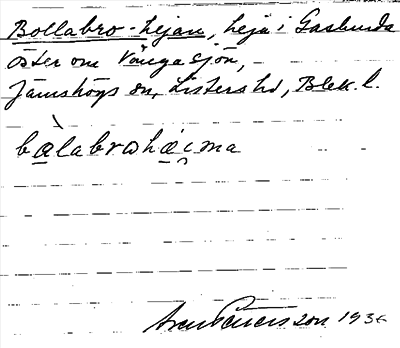 Bollabro-hejan, heja i Gaslunda
öster om Vångasjön,
Jämshögs sn, Listers hd, Blek. l.
bålabrωhåi̯ma
1936